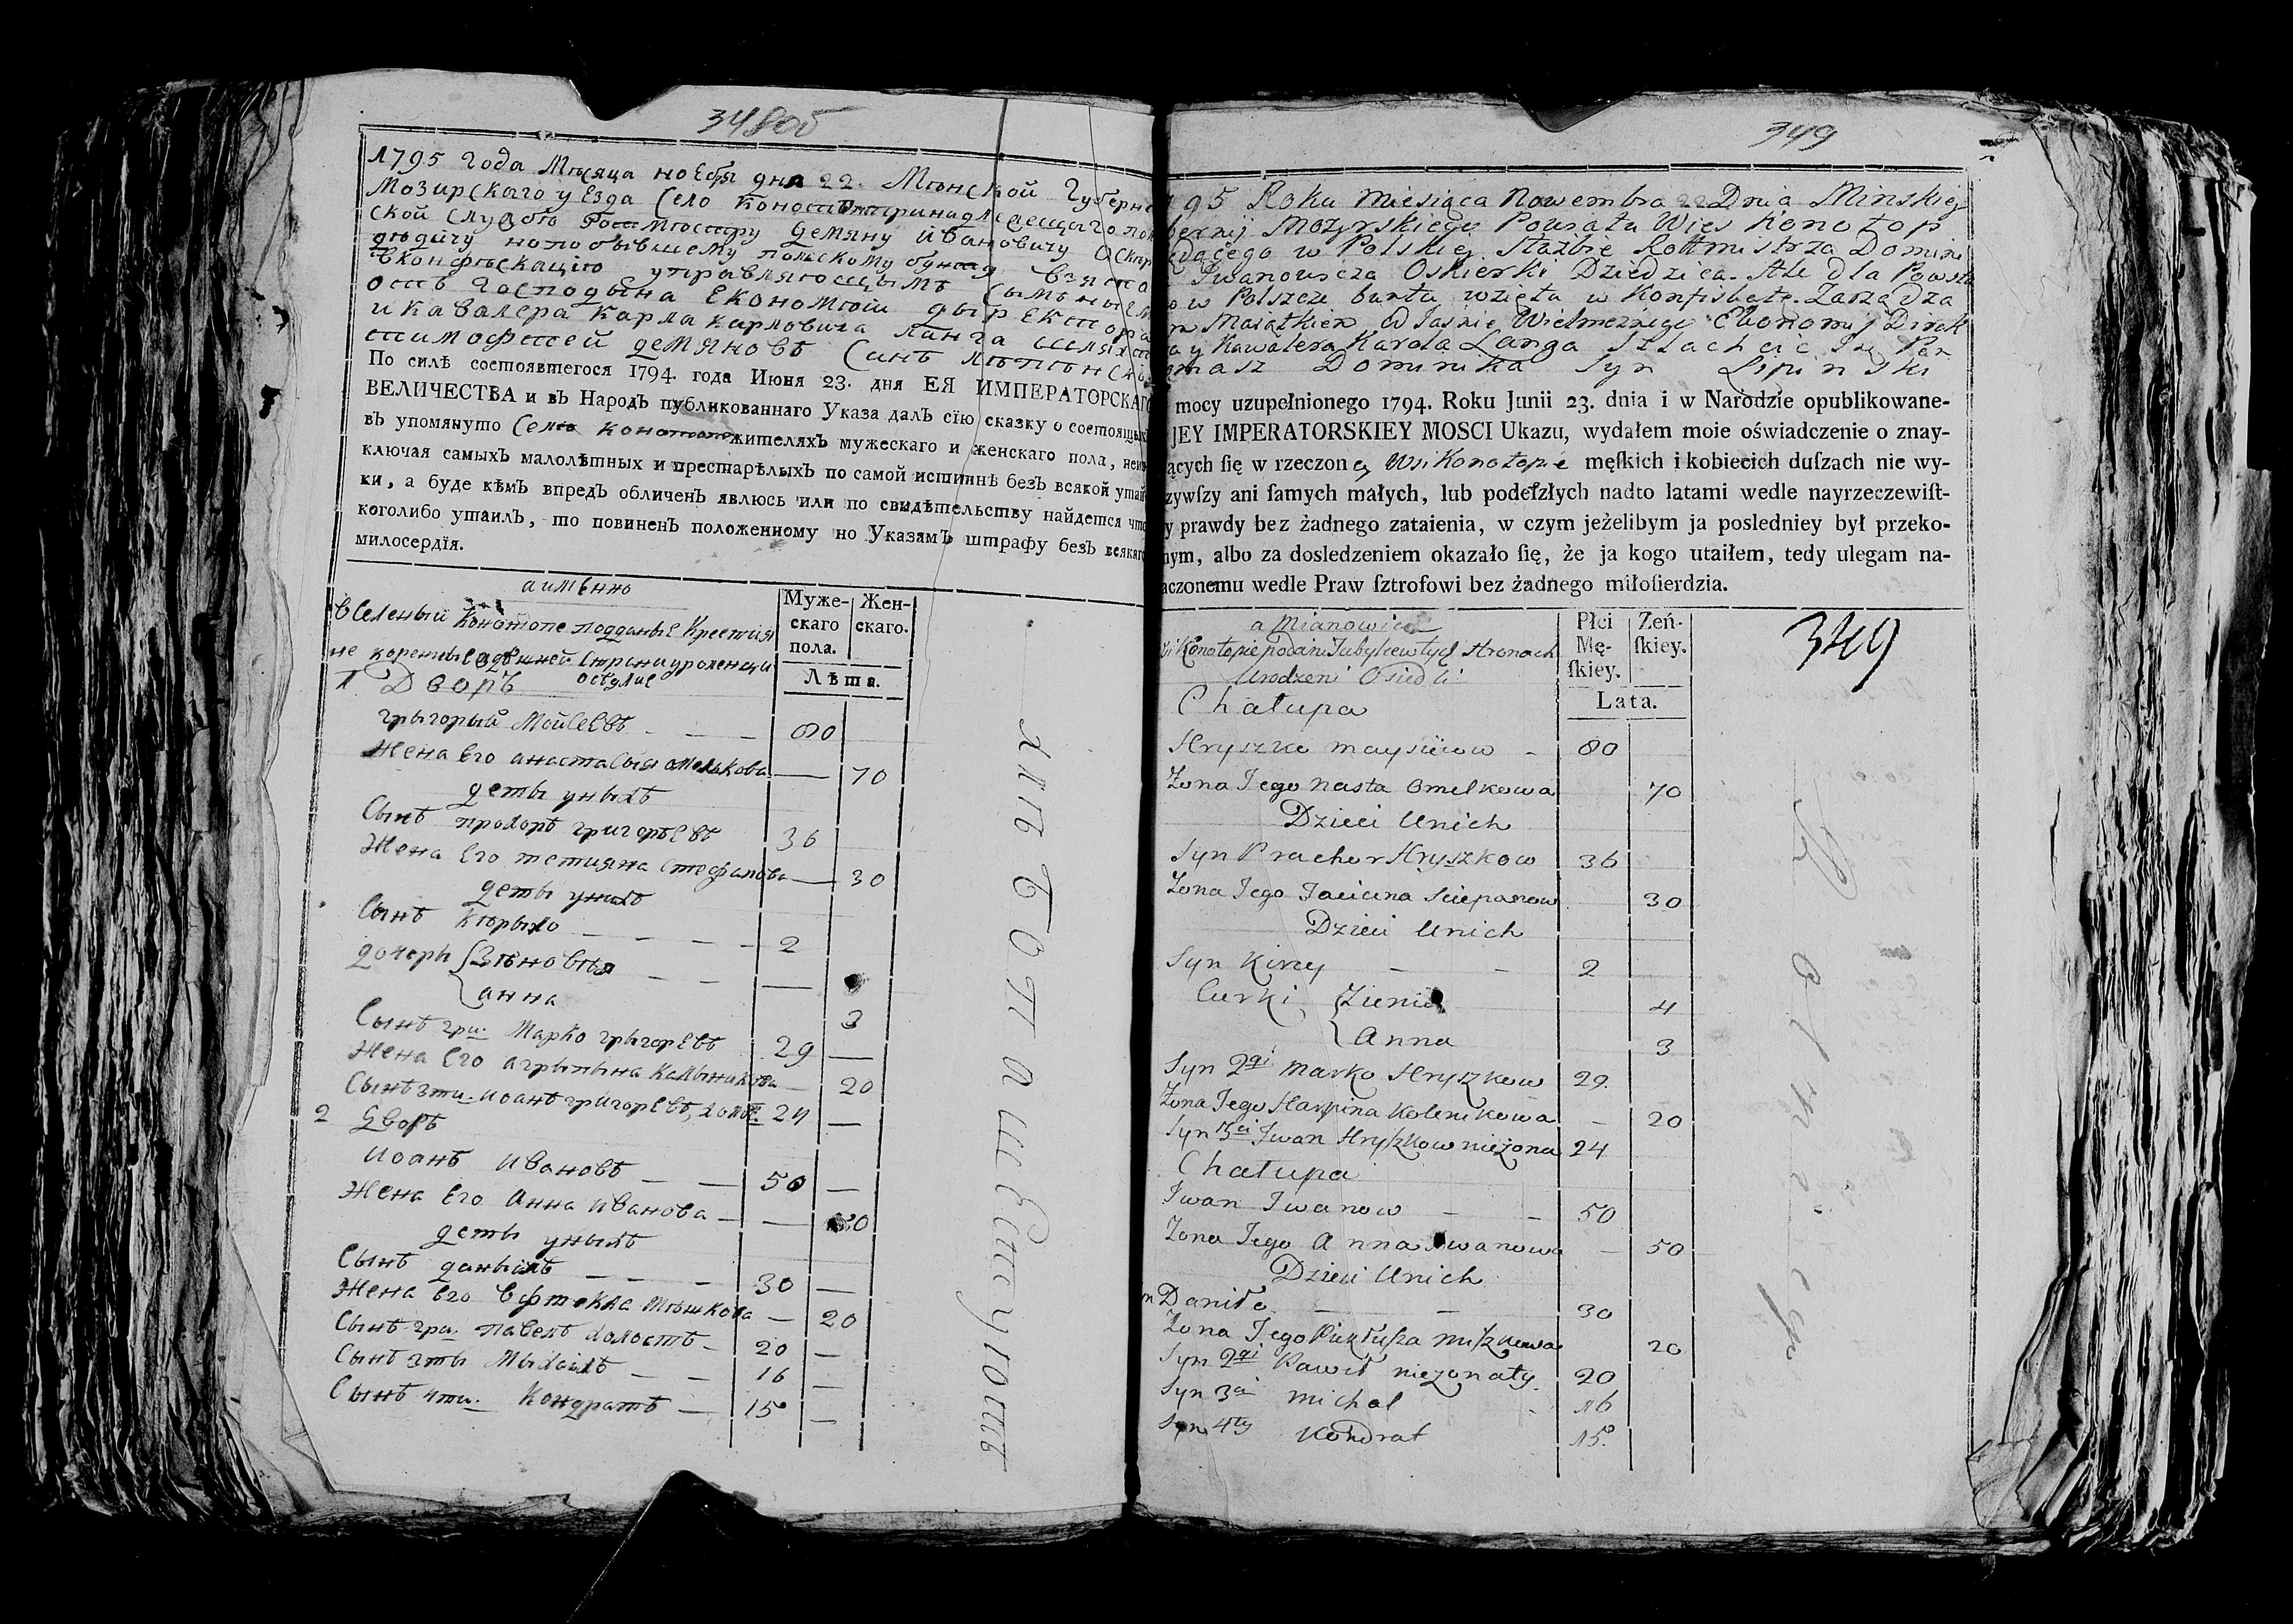 348об
1795 года Мѣсяца ноебря дня 22. Мѣнской Губерн
Мозирскаго уезда Село Конотоп принадлежещаго пол
ской службы Ротмистру Демяну Ивановичу Оскир
дѣдичу но по бывшему полскому бунта взята
вконфѣскацію управляющымъ сымъ
отъ господына Економіи дыректора
и кавалера Карла Карловича Ланга шляхт
тимофтей демяновъ Синъ
По силѣ состоявшегося 1794. года Июня 23. дня ЕЯ ИМПЕРАТОРСКАГО
ВЕЛИЧЕСТВА и въ Народъ публикованнаго Указа далъ сїю сказку о состоящих
въ упомянуто Селѣ Конотопѣ жителяхъ мужескаго и женскаго пола, неис
ключая самыхъ малолѣтных и престарѣлыхъ по самой истиннѣ безъ всякой утай
ки, а буде кѣмъ впредъ обличенъ явлюсь или по свидѣтельству найдется что
коголибо утаилъ, то повиненъ положенному по Указамъ штрафу безъ всякаго
милосердїя.
аимѣнно
вселеныи Конотопе подданые Крестия
не коренные здѣшней страни уроженци
оседлие
Муже-
скаго
пола.
Жен-
скаго.
Лѣта.
1 Дворъ
григорый Мойсеевъ - - - 80
Жена его анастасыя омелкова — 70
деты уныхъ
Сынъ прохоръ григоръевъ 36
Жена его тетияна стефанова — 30
деты уныхъ
Сынъ Кѣрыло - - - - 2
дочеры {Зѣновѣя - - —
анна 3
Сынъ гри. Марко григоревъ 29 —
Жена его агрыпына Калыникова — 20
Сынъ 3ти. иоанъ григоревъ, холос: 24 —
2 Дворъ
Иоанъ Ивановъ — — 50 —
Жена Его Анна Иванова — — 50
деты уныхъ
Сынъ данылъ - - - 30 —
Жена Его Мѣшкова — 20
Сынъ гри. павелъ холостъ - 20 —
Сынъ 3ты Мыхаилъ — — 16 —
Сынъ 4ти. Кондратъ — 15 —
349
795 Roku Miesiąca Nowembra 22 Dnia Minskiej
bernij Mozyrskiego Powiatu Wies Konotop
ędącego w Polskiej Służbie Rottmistrza Domini
Iwanowicza Oskierki Dziedzica. Ale dla Powsta
o w Polszcze buntu wzięta w Konfiskatę. Zarządza
m Maiątkiem od Jaśnie Wielmożnego Ekonomij Direk
a y Kawalera Karola Langa Szlachcic Ję Pan
omasz Dominika Syn Lipinski
mocy uzupełnionego 1794. Roku Junii 23. dnia i w Narodzie opublikowane-
JEY IMPERATORSKIEY MOSCI Ukazu, wydałem moie oświadczenie o znay-
ących ſię w rzeczoney Wsi Konotopie męſkich i kobiecich duſzach nie wy-
zywſzy ani ſamych małych, lub podeſzłych nadto latami wedle nayrzeczewiſt-
y prawdy bez żadnego zataienia, w czym jeżelibym ja posledniey był przeko-
nym, albo za dosledzeniem okazało ſię, że ja kogo utaiłem, tedy ulegam na-
aczonemu wedle Praw ſztrofowi bez żadnego miłoſierdzia.
a Mianowicie
Konotopie podani Tubylcew tych Stronach
Urodzeni Osiedli
Płci
Mę-
ſkiey.
Zeń-
ſkiey.
Lata.
349
Chałupa
Hryszko Maysiiow - 80
Żona Jego Nasta Omelkowa 70
Dzieci Unich
Syn Prachor Hryszkow 36
Żona Jego Taciana Sciepanow 30
Dzieci Unich
Syn Kirey - - 2
Curki {Zienia 4
Anna 3
Syn 2gi Marko Hryszkow 29.
Żona Jego Harpina Kolenikowa - 20
Syn 3ci Iwan Hryszkow nieżona 24
Chałupa
Iwan Iwanow - - 50
Żona Jego Anna Iwanowa - 50
Dzieci Unich
Daniło - - 30
Żona Jego Miszkowa 20
Syn 2gi Paweł nieżonaty. 20
Syn 3ci Michał 16
Syn 4ty Kondrat 15.